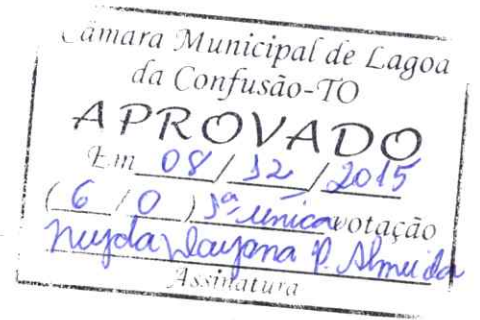 Câmara Municipal de Lagoa
da Confusão-TO
APROVADO
Em 08/12/2015
(6/0) 1ª única votação
Dayana P. Almeida
Assinatura